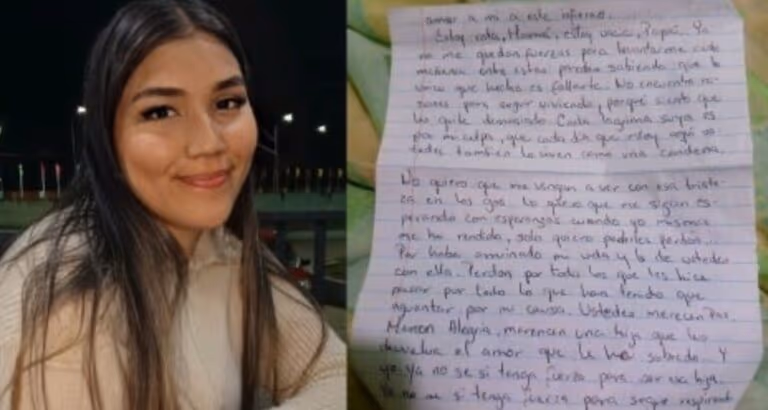 amor a mi a este infierno.
Estoy rota, Mamá, estoy vacía, Papá. Ya
no me quedan fuerzas para levantarme cada
mañana entre estas paredes sabiendo que lo
único que hice es fallarte. No encuentro ra
zones para seguir viviendo, porque siento que
les quite demasiado. Cada lagrima suya es
por mi culpa, que cada día que estoy aquí us
tedes también lo viven como una condena.
No quiero que me vengan a ver con esa triste
za en los ojos. No quiero que me sigan es
perando con esperanzas cuando yo misma
me he rendido, solo quiero pedirles perdón...
Por haber arruinado mi vida y la de ustedes
con ella. Perdon por todo los que les hice
pasar por todo lo que han tenido que
aguantar por mi causa. Ustedes merecen Paz.
Alegría, merecen una hija que les
devuelva el amor que le ha sobrado. Y
yo ya no se si tenga fuerza para ser esa hija.
Ya no se si tenga fuerza para seguir respirand